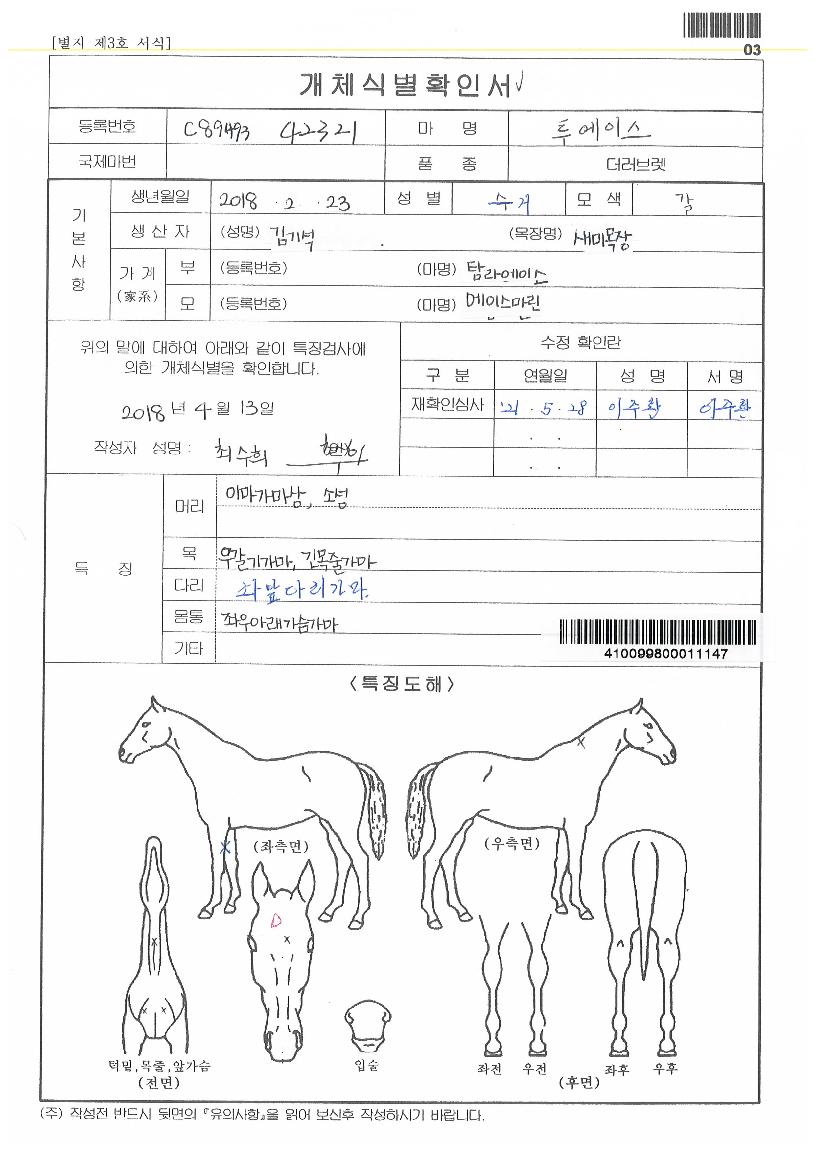 [별지 제3호 서식]
03
개체식별확인서
등록번호 C89493 42321 마 명 투에이스
국제마번 품 종 더러브렛
기본사항
생년월일 2018 . 2 . 23 성 별 수거 모 색 갈
생 산 자 (성명) 김기석 (목장명) 새미목장
가 계 (家系)
부 (등록번호) (마명) 탐라에이스
모 (등록번호) (마명) 메이스마린
위의 말에 대하여 아래와 같이 특징검사에
의한 개체식별을 확인합니다.
2018 년 4 월 13 일
작성자 성명 : 최수희
수정 확인란
구 분 연월일 성 명 서 명
재확인심사 '21 . 5 . 28 이주환 이주환
. .
. .
특 징
머리 이마가마남, 소성
목 우갈기가마, 긴목줄가마
다리 좌앞다리가마.
몸통 좌우아래가슴가마
기타
410099800011147
<특징도해>
(좌측면)
(우측면)
턱밑,목줄,앞가슴
(전면)
입술
좌전 우전 좌후 우후
(후면)
(주) 작성전 반드시 뒷면의 『유의사항』을 읽어 보신후 작성하시기 바랍니다.